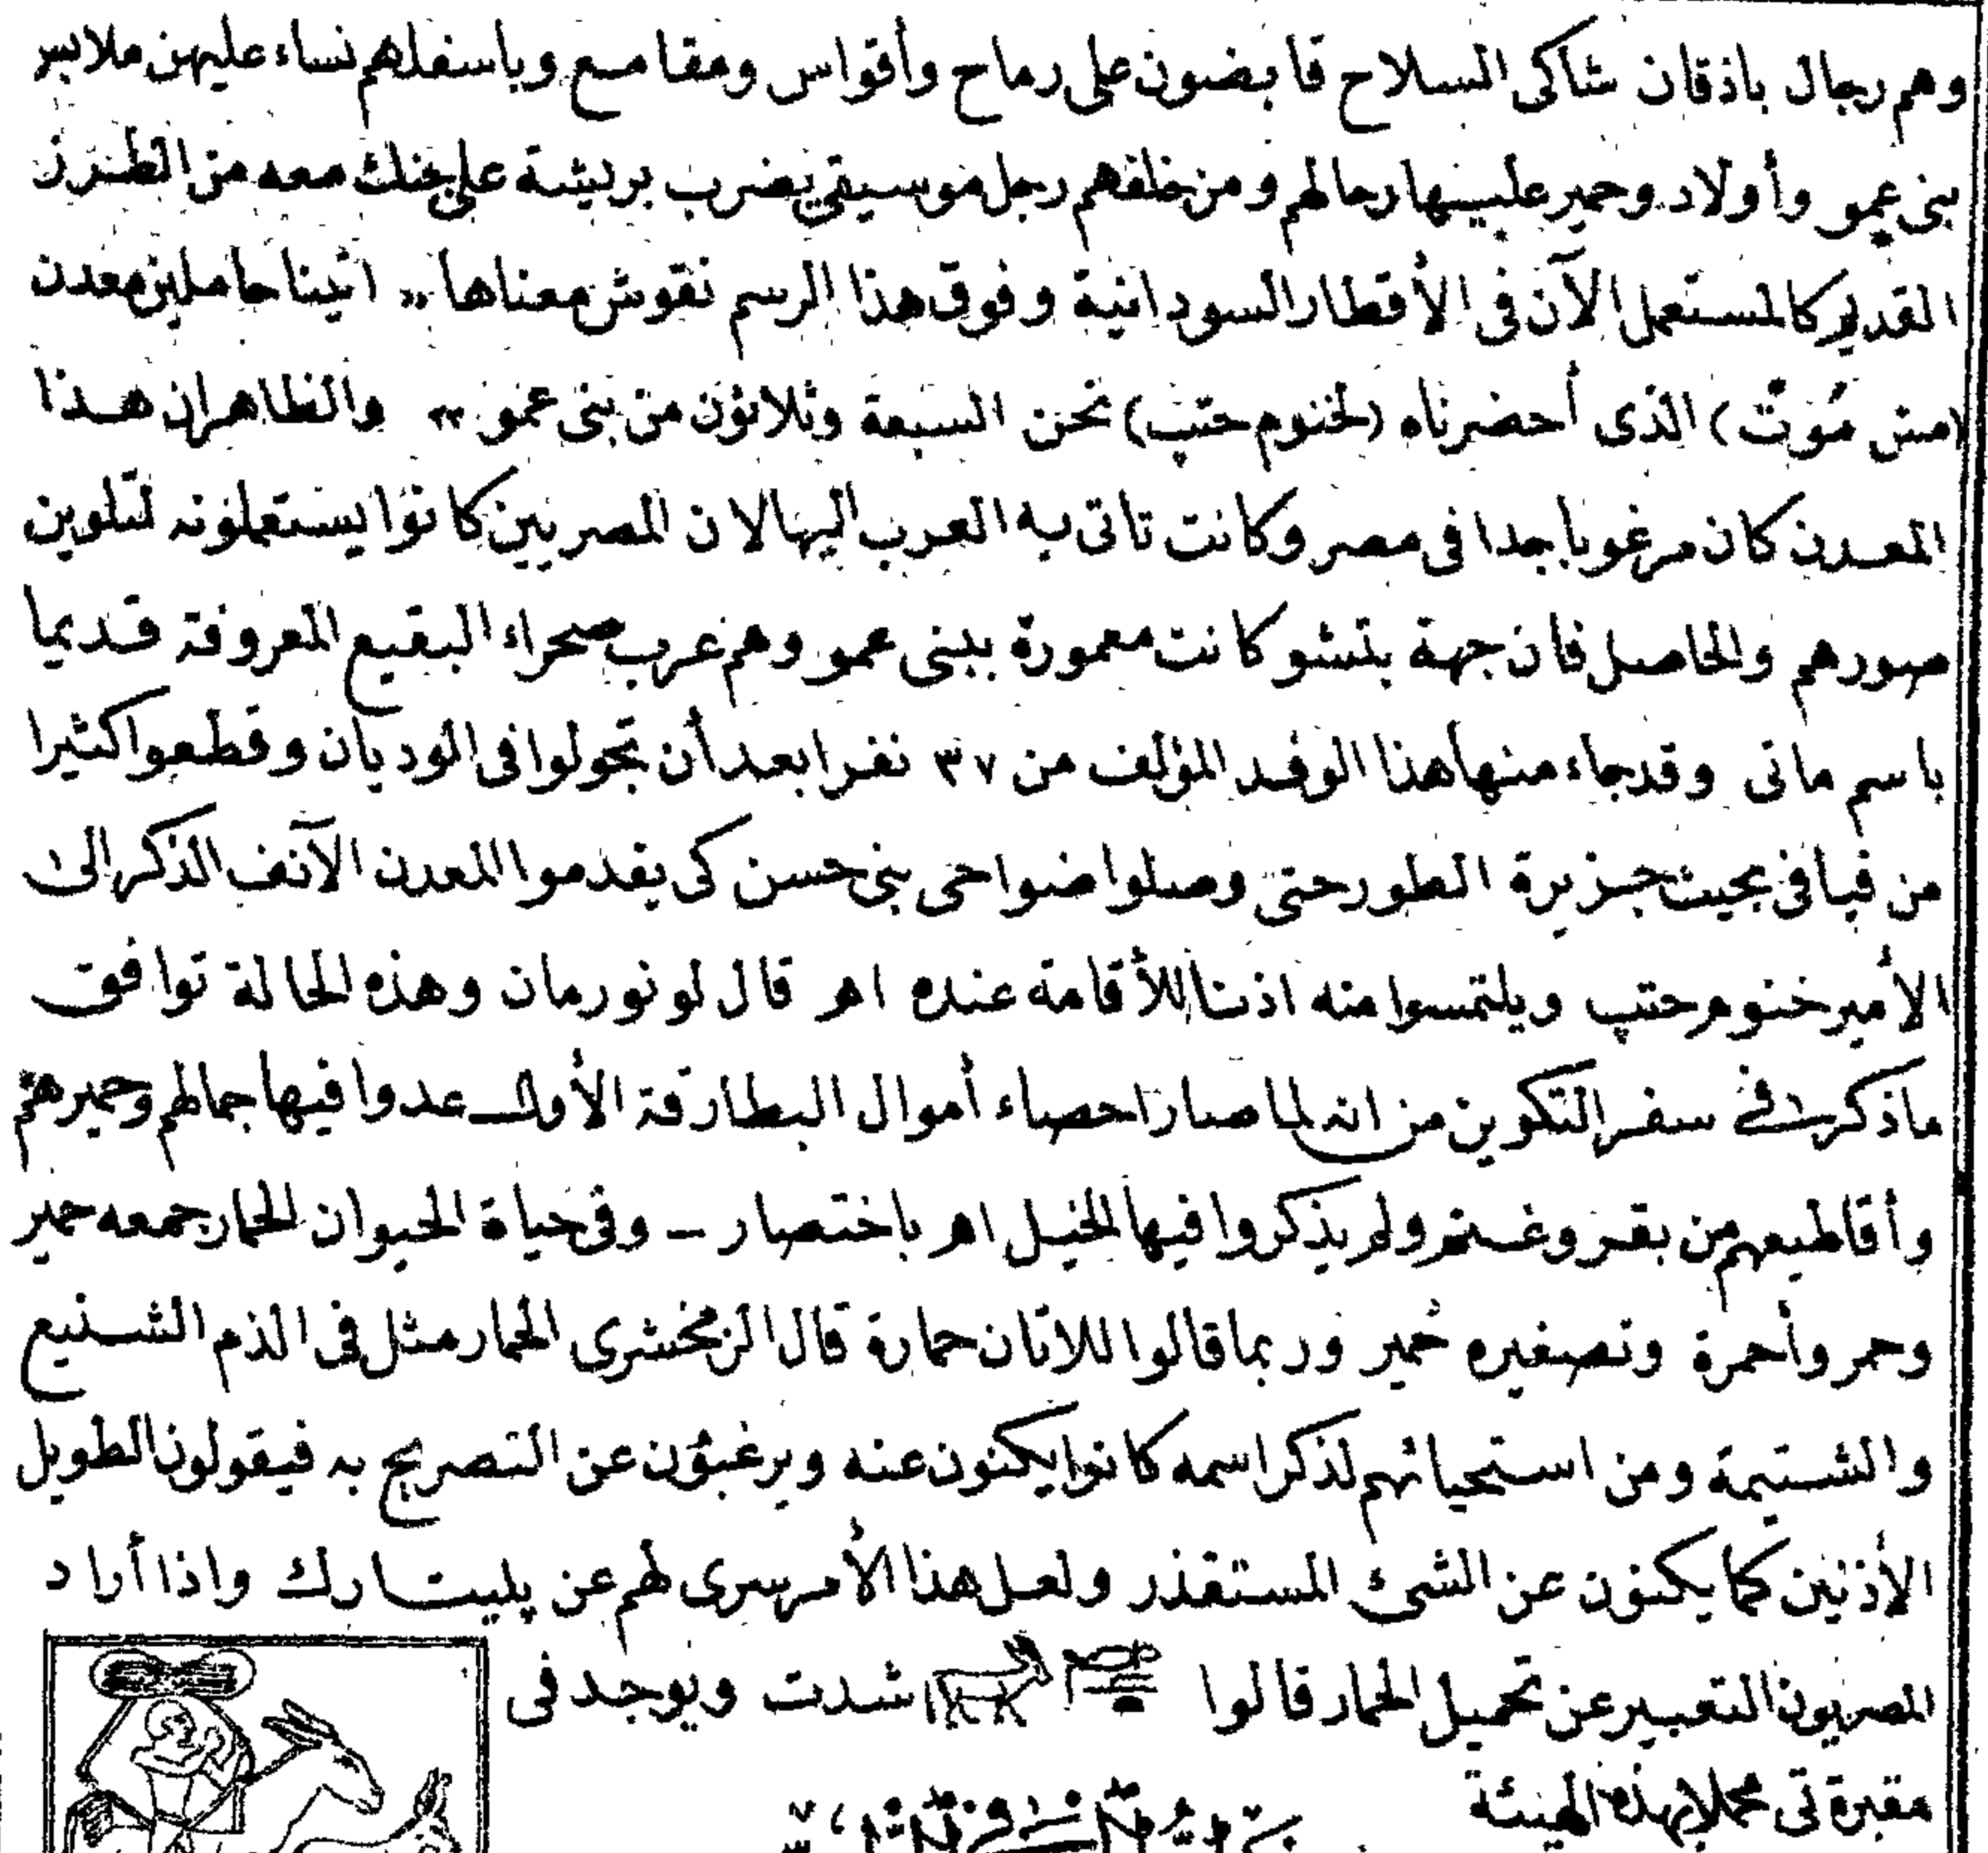 وهم رجال باذقان شاكى السلاح قابضون على رماح وأقواس ومقامع وباسفلهم نساء عليهن ملابس
بنى عمو وأولاد وحمير عليها رحالهم ومن خلفهم رجل موسيقى يضرب بريشة على جنك معه من الطرز
القديم كالمستعمل الآن فى الأقطار السودانية وفوق هذا الرسم نقوش معناها « اتينا حاملين معدن
(مس مُوتْ) الذى أحضرناه (لخنوم حتپ) نحن السبعة وثلاثون من بنى عمو » والظاهر ان هذا
المعدن كان مرغوبا جدا فى مصر وكانت تاتى به العرب اليها لان المصريين كانوا يستعملونه لتلوين
صورهم والحاصل فان جهة بتشو كانت معمورة ببنى عمو وهم عرب صحراء البقيع المعروفة قديما
باسم ماتى وقد جاء منها هذا الوفد المؤلف من ٣٧ نفرا بعد أن تجولوا فى الوديان وقطعوا كثيرا
من فيافى بحيث جزيرة الطور حتى وصلوا ضواحى بنى حسن كى يقدموا المعدن الآنف الذكر الى
الأمير خنوم حتپ ويلتمسوا منه اذنا للأقامة عنده اهر قال لونورمان وهذه الحالة توافق
ماذكر فى سفر التكوين من انه لما صار احصاء أموال البطارقة الأول عدوا فيها جمالهم وحميرهم
وأقاطيعهم من بقر وغنم ولم يذكروا فيها الخيل اهر باختصار ــ وفى حياة الحيوان الحمار جمعه حمير
وحمر وأحمرة وتصغيره حُمير وربما قالوا للاتان حمارة قال الزمخشرى الحمار مثل فى الذم الشنيع
والشتيمة ومن استحيائهم لذكر اسمه كانوا يكنون عنه ويرغبون عن التصريح به فيقولون الطويل
الأذنين كما يكنون عن الشىء المستقذر ولعل هذا الأمر سرى لهم عن پليتارك واذا أراد
المصريون التعبير عن تحميل الحمار قالوا شدت ويوجد فى
مقبرة تى محملا بهذه الهيئة